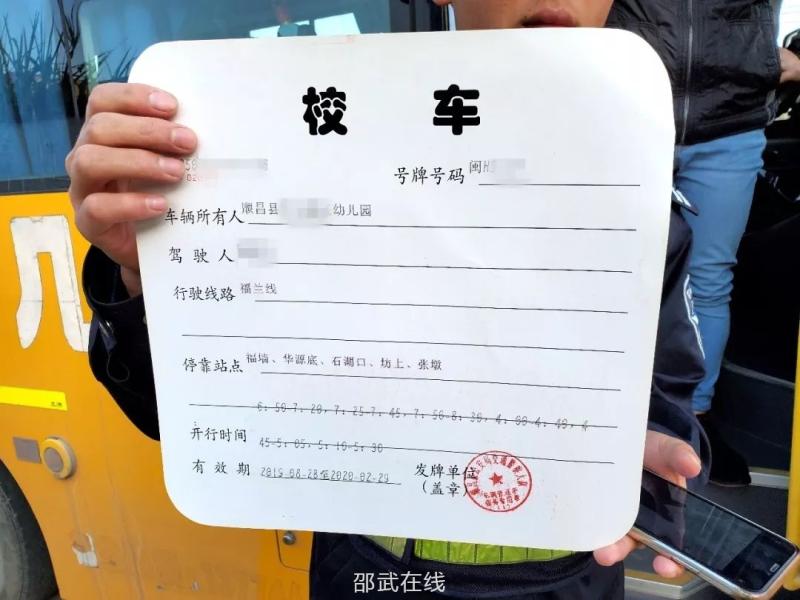 校 车
号牌号码 闽H
车辆所有人 顺昌县 幼儿园
驾驶人
行驶线路 福兰线
停靠站点 福墙、华源底、石湖口、坊上、张墩
6:50-7:20,7:25-7:45,7:50-8:30,4:00-4:40,4
开行时间 45-5:05,5:10-5:30
有效期 2019-08-28至2020-02-29 发牌单位
(盖章)
几
邵武在线